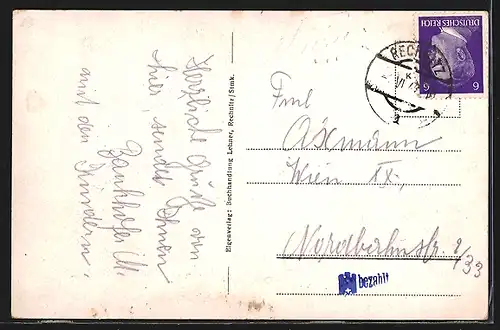 Herzliche Grüße von
hier, sendet Ihnen
mit den Kindern.
Eigenverlag: Buchhandlung Lehner, Rechnitz/Stmk.
DEUTSCHES REICH
6 6
RECHNITZ
Axmann
Wien XX,
Nordbahnstr. 2/33
bezahlt